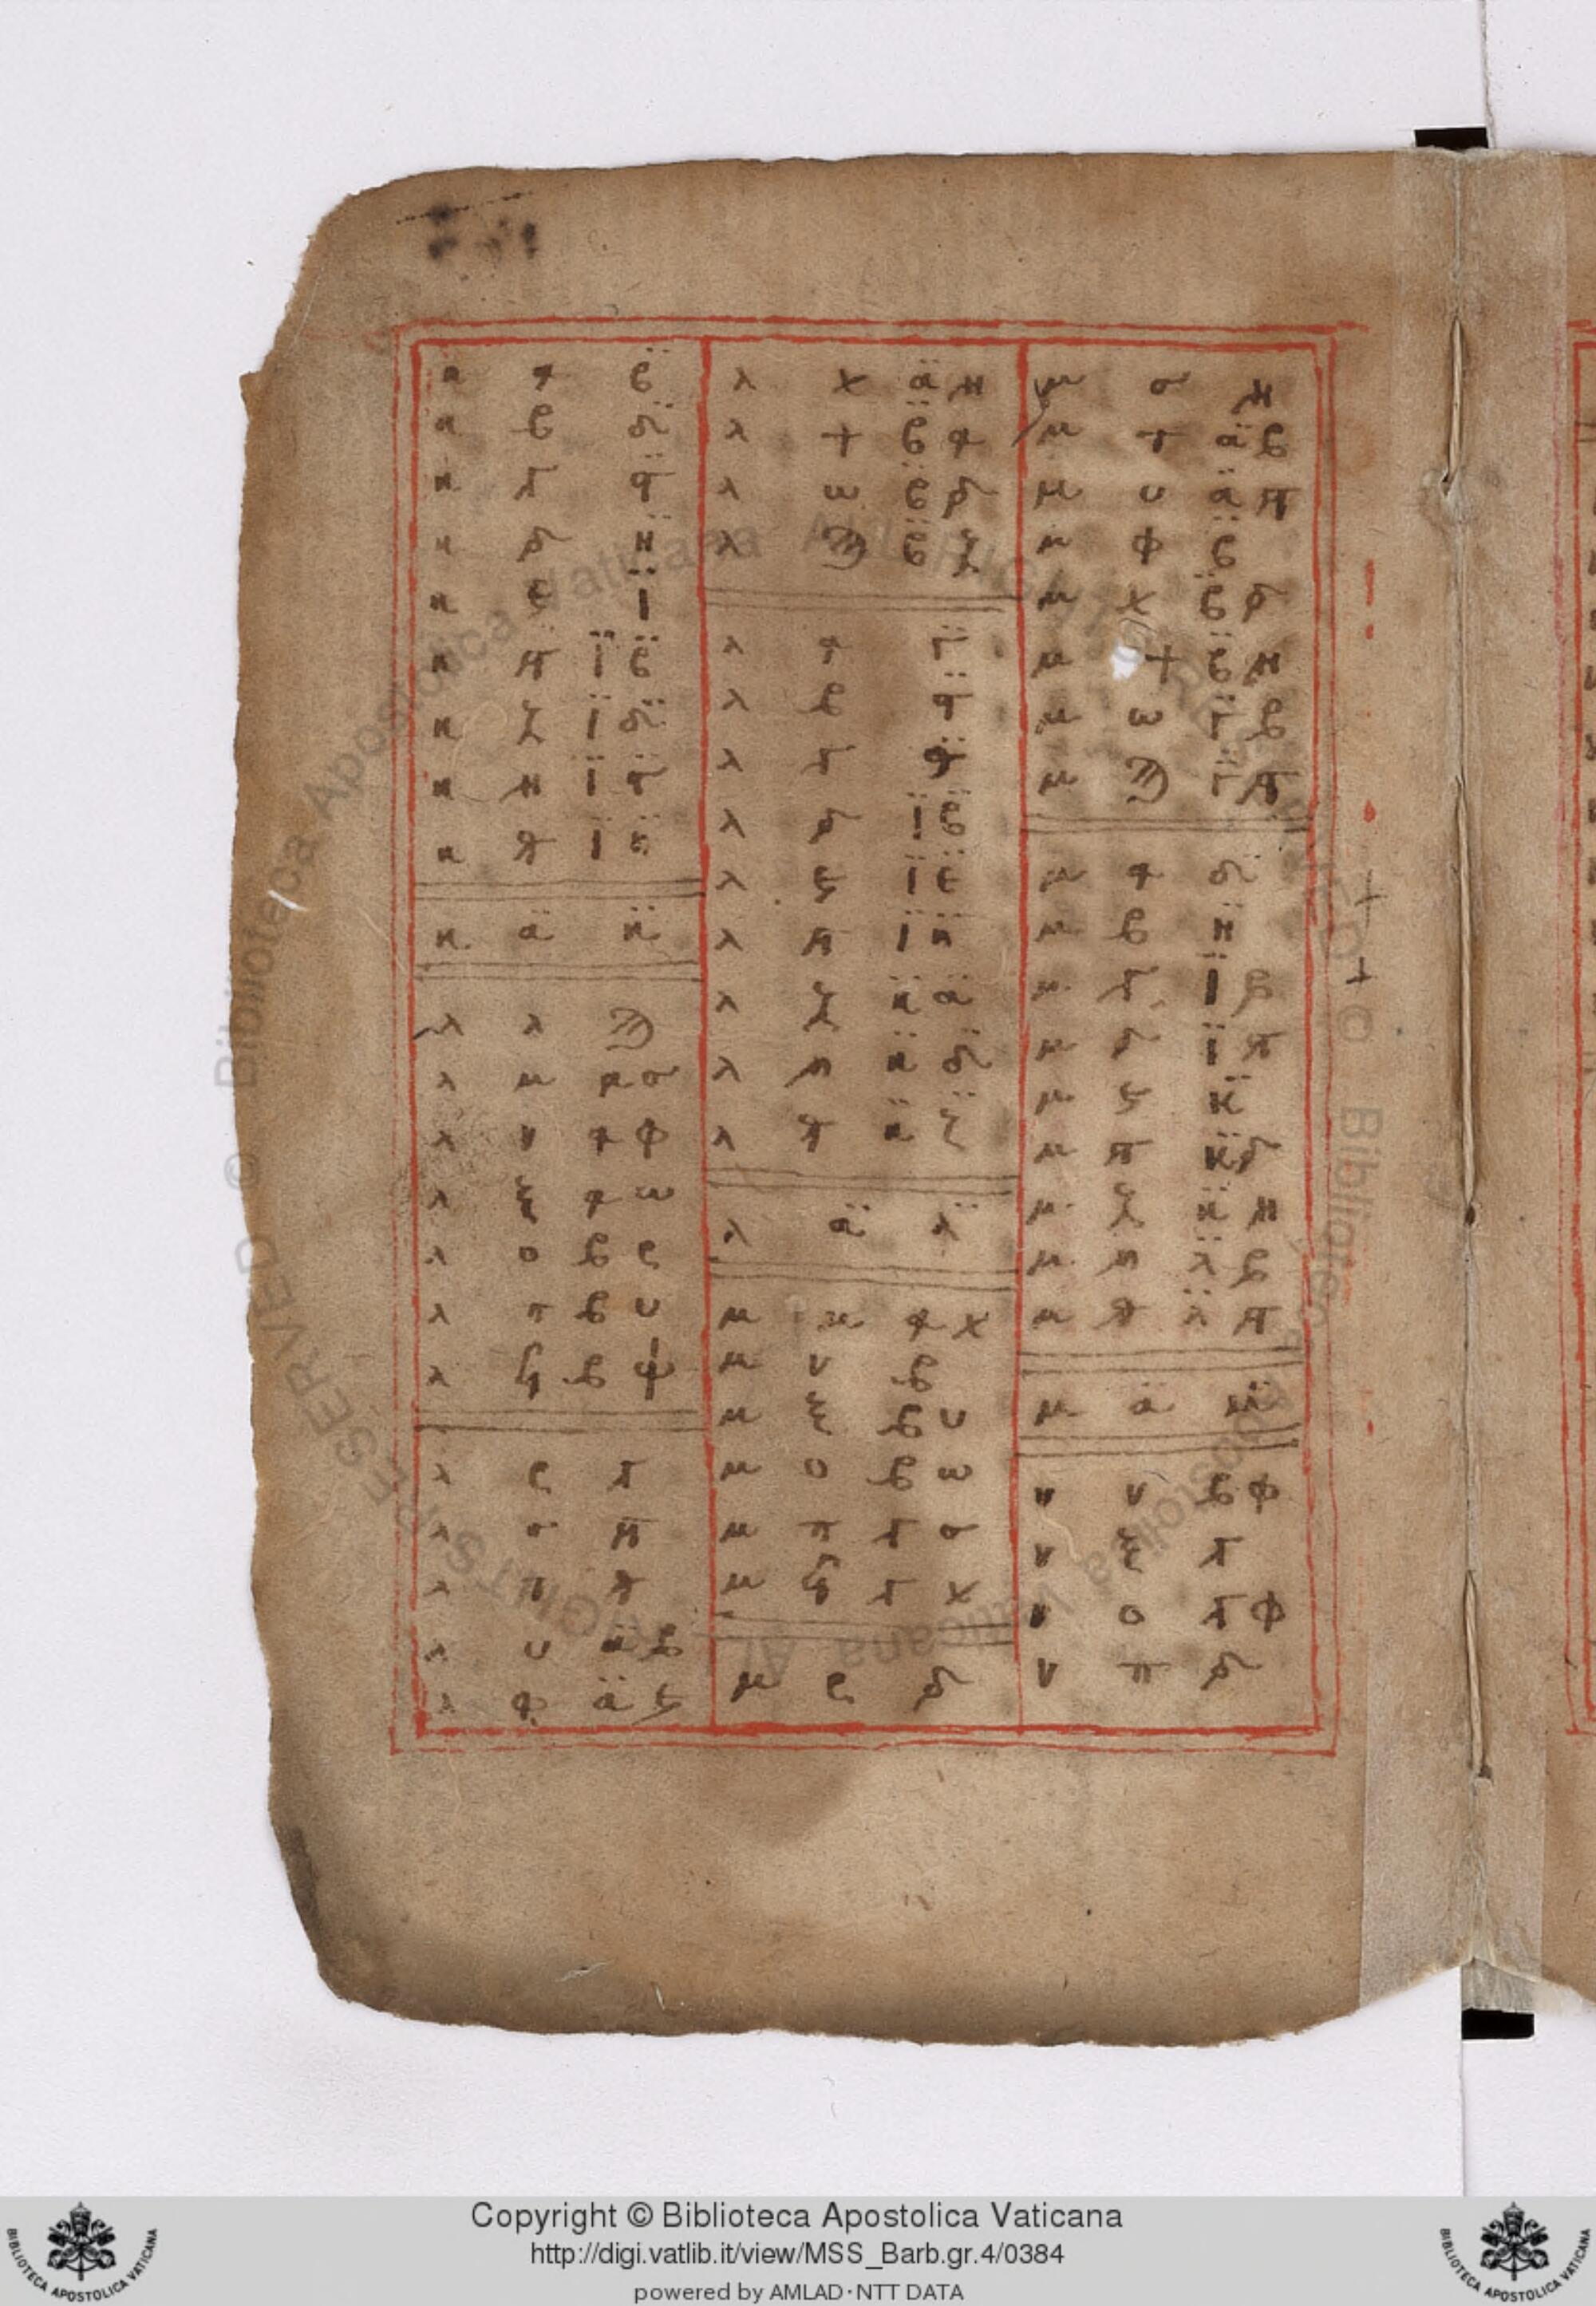 κ ͵α β̈
κ ͵β δ̈
κ ͵γ ϛ̈
κ ͵δ η̈
κ ͵ε ϊ
κ ͵ϛ ϊ β̈
κ ͵ζ ϊ δ̈
κ ͵η ϊ ϛ̈
κ ͵θ ϊ η̈
κ α̈ κ̈
λ λ ϡ
λ μ ͵α σ
λ ν ͵α φ
λ ξ ͵α ω
λ ο ͵β ρ
λ π ͵β υ
λ ϟ ͵β ψ
λ ρ ͵γ
λ σ ͵ϛ
λ τ ͵θ
λ υ α̈ ͵β
λ φ α̈ ͵ε
λ χ α̈ ͵η
λ ψ β̈ ͵α
λ ω β̈ ͵δ
λ ϡ β̈ ͵ζ
λ ͵α γ̈
λ ͵β ϛ̈
λ ͵γ θ̈
λ ͵δ ϊ β̈
λ ͵ε ϊ ε̈
λ ͵ϛ ϊ η̈
λ ͵ζ κ̈ α̈
λ ͵η κ̈ δ̈
λ ͵θ κ̈ ζ̈
λ α̈ λ̈
μ μ ͵α χ
μ ν ͵β
μ ξ ͵β υ
μ ο ͵β ω
μ π ͵γ σ
μ ϟ ͵γ χ
μ ρ ͵δ
μ σ ͵η
μ τ α̈ ͵β
μ υ α̈ ͵ϛ
μ φ β̈
μ χ β̈ ͵δ
μ ψ β̈ ͵η
μ ω γ̈ ͵β
μ ϡ γ̈ ͵ϛ
μ ͵α δ̈
μ ͵β η̈
μ ͵γ ϊ ͵β
μ ͵δ ϊ ͵ϛ
μ ͵ε κ̈
μ ͵ϛ κ̈ ͵δ
μ ͵ζ κ̈ ͵η
μ ͵η λ̈ ͵β
μ ͵θ λ̈ ͵ϛ
μ α̈ μ̈
ν ν ͵β φ
ν ξ ͵γ
ν ο ͵γ φ
ν π ͵δ
Copyright © Biblioteca Apostolica Vaticana
http://digi.vatlib.it/view/MSS_Barb.gr.4/0384
powered by AMLAD·NTT DATA